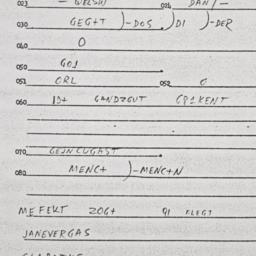 023 — WELSH 024 DAN / —
030 GEG+T )-DOS .) DI )-DER
040 O
050 GO1
051 ORL 052 O
060 1D+ GANDZGUT GP1KENT
070 GEJNCUGAST
080 MENC+ )-MENC+N
MEFEKT ZOG+ 91 KLEGT
JANEVERGAS